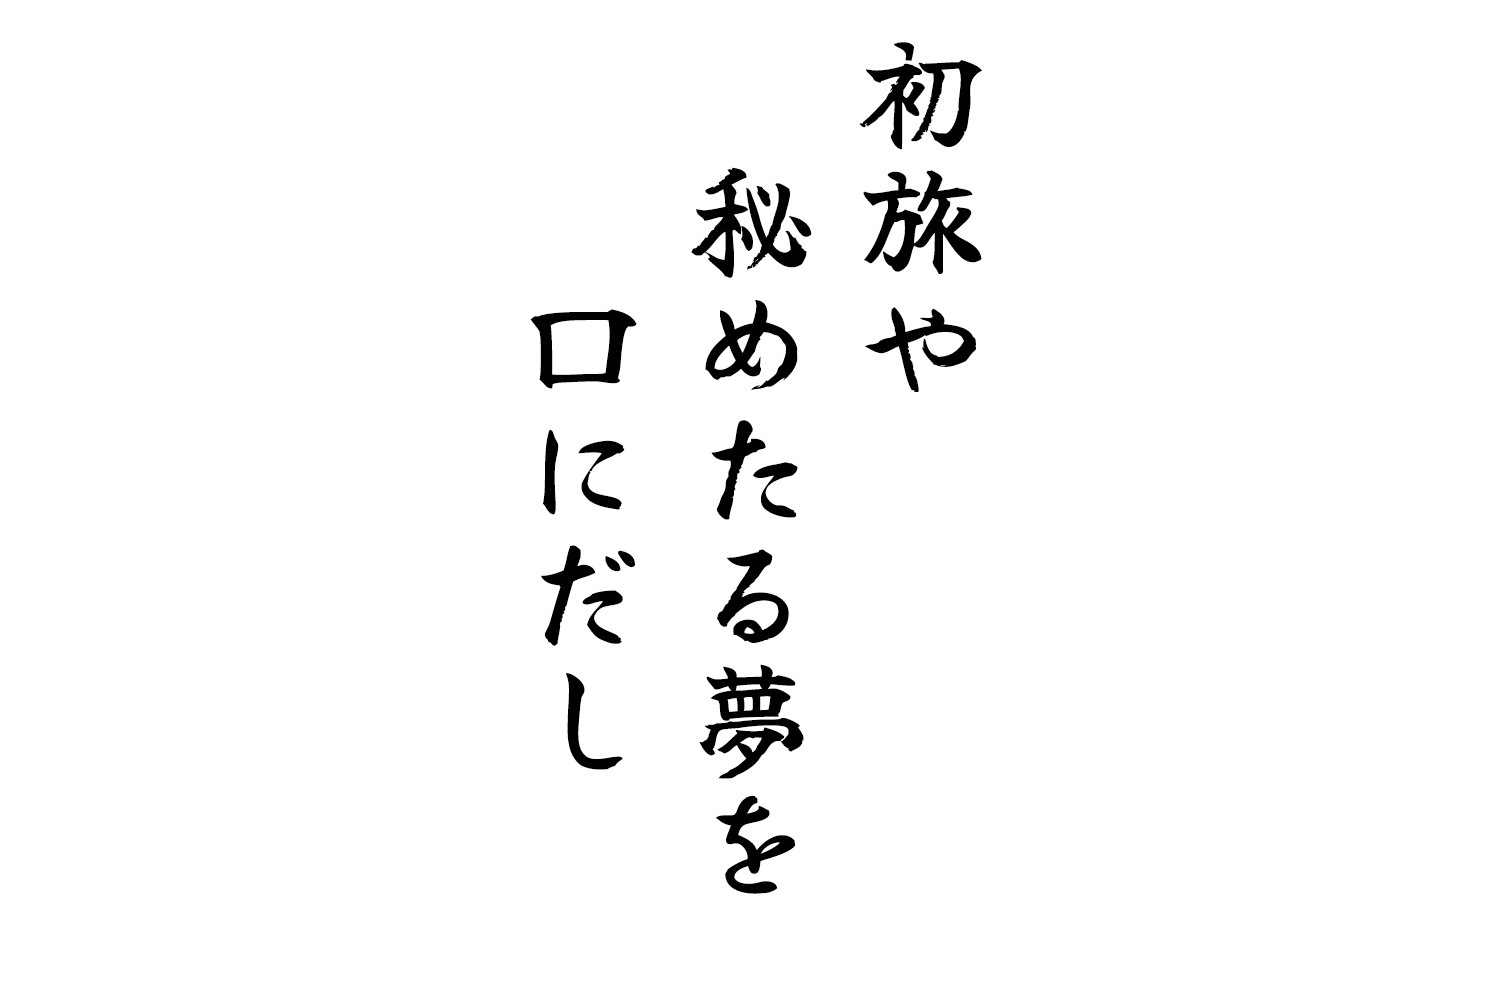 初旅や
秘めたる夢を
口にだし